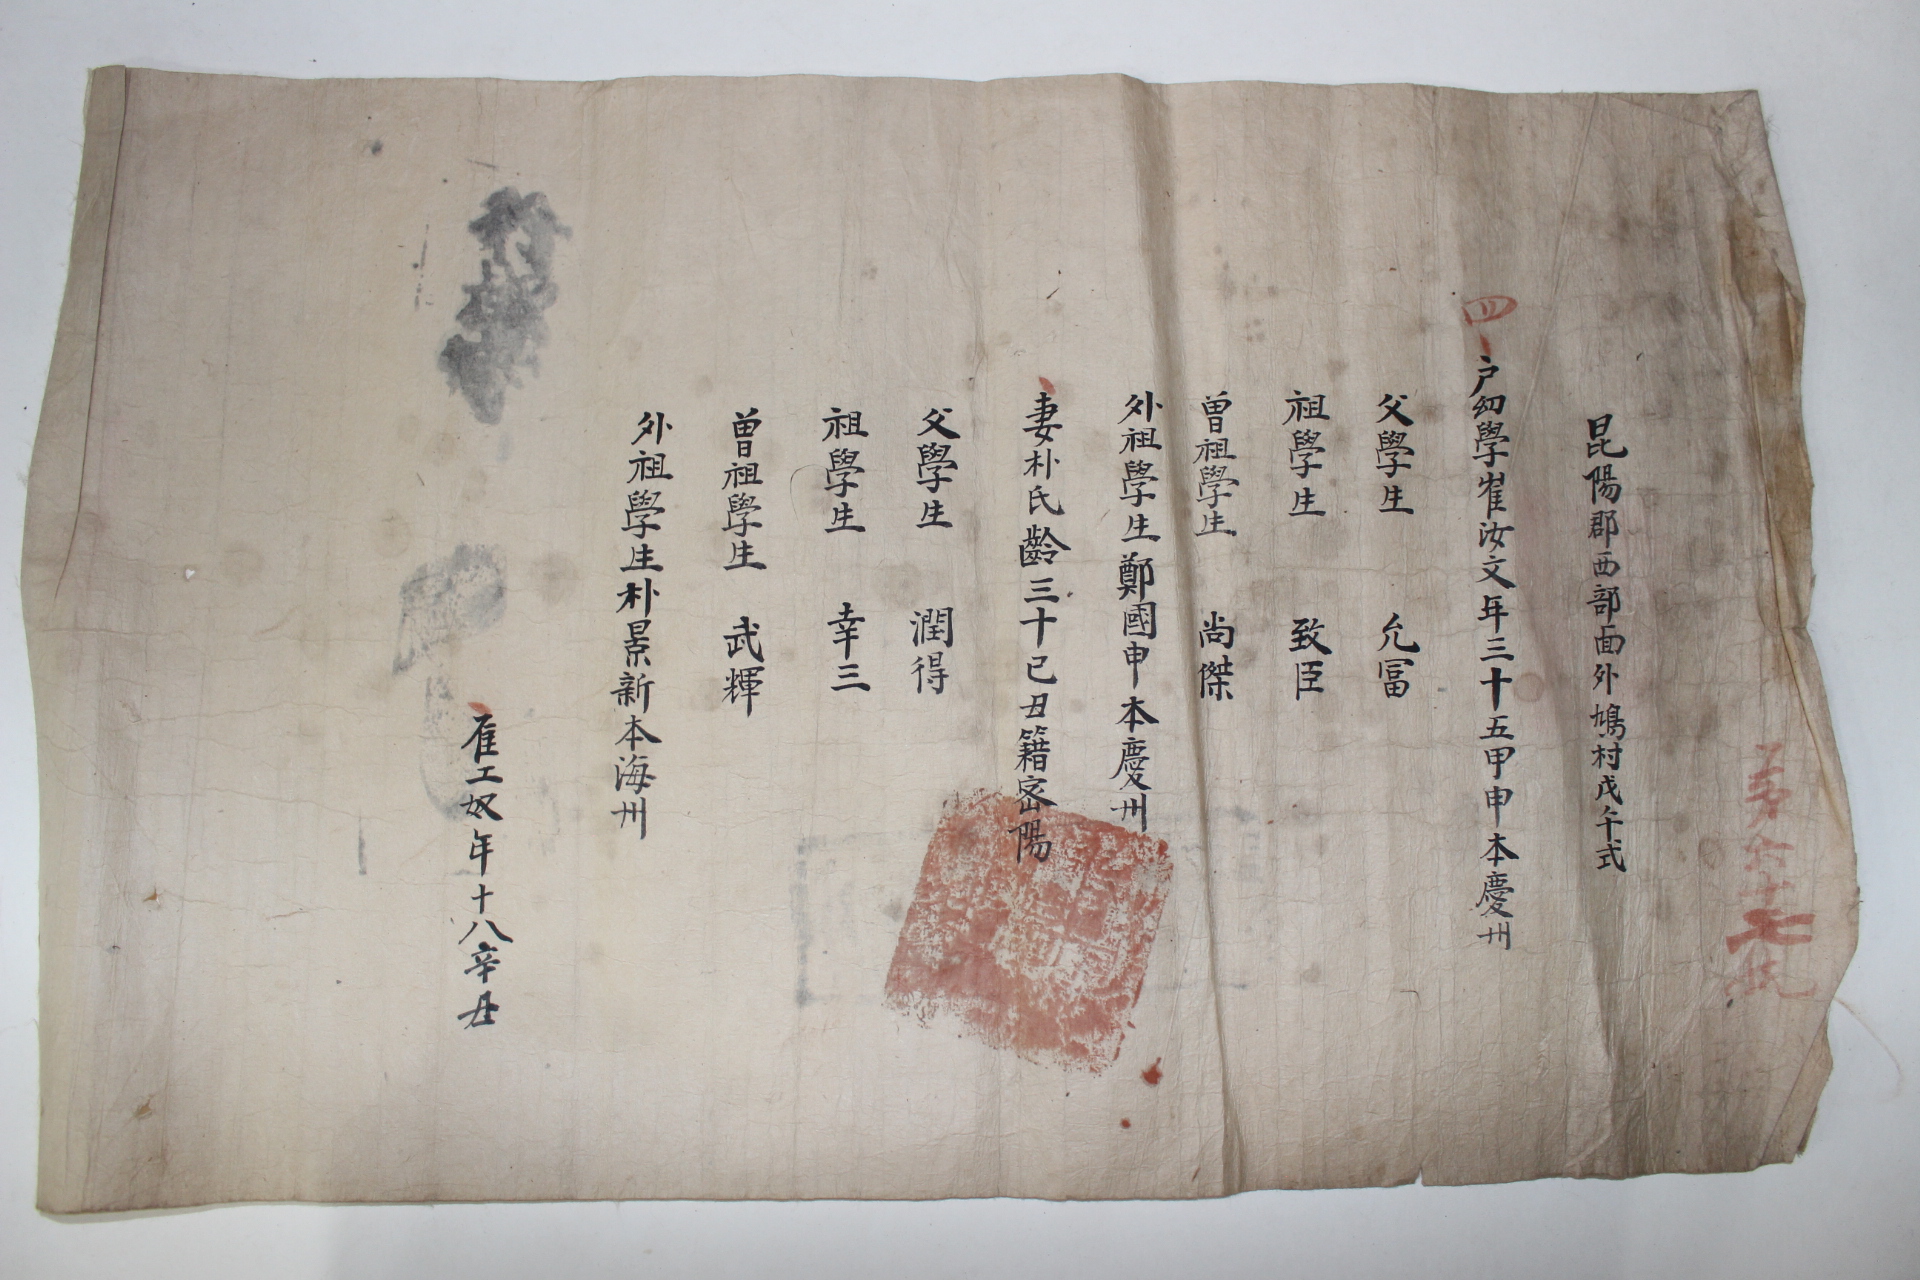 第六十七統
昆陽郡西部面外鳩村戊午式
四
戶幼學崔汝文年三十五甲申本慶州
父學生 允冨
祖學生 致臣
曾祖學生 尚傑
外祖學生鄭國申本慶州
妻朴氏齡三十己丑籍密陽
父學生 潤得
祖學生 幸三
曾祖學生 武輝
外祖學生朴景新本海州
雇工奴年十八辛丑